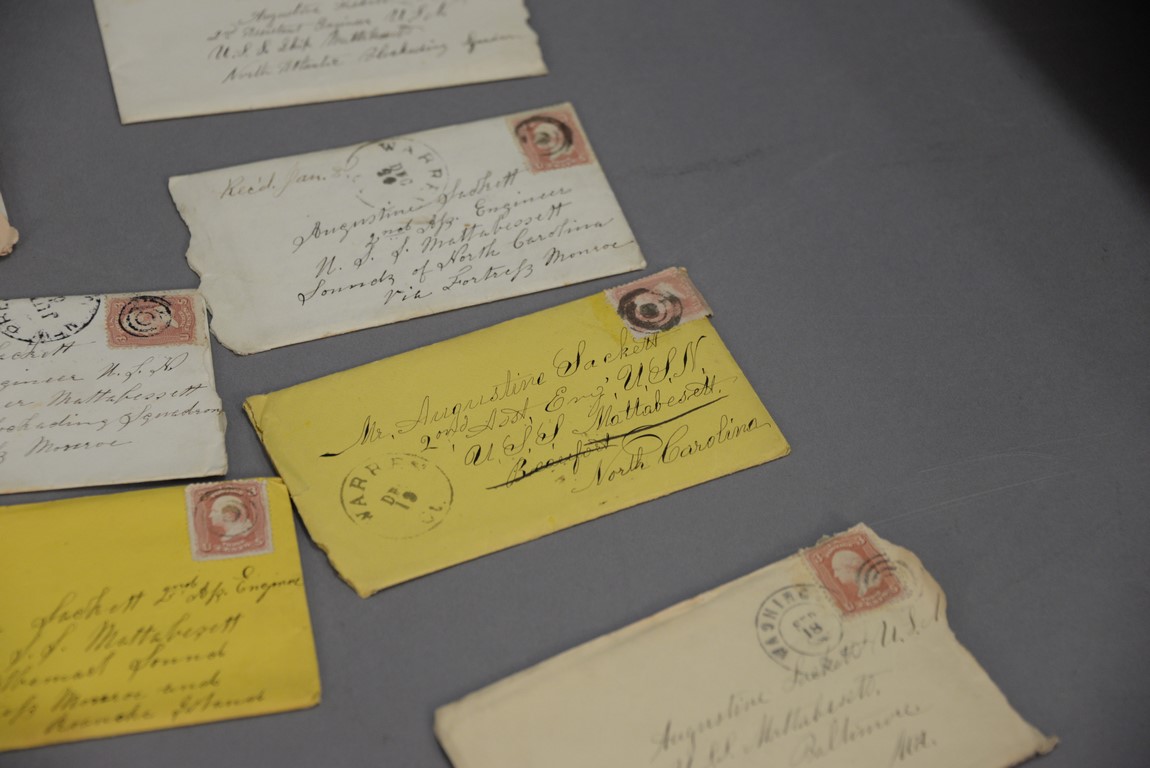 Augustine
2nd Assistant Engineer U.S.N.
U.S. Ship Mattabesett
North Atlantic Blockading
Rec'd. Jan.
WARRE
DEC
Augustine Sackett
2nd Ass. Engineer
U. S. S. Mattabessett
Sounds of North Carolina
Via Fortress Monroe
NEW
ackett
gineer U.S.N
er Mattabessett
ockading Squadron
Monroe
Mr. Augustine Sackett
2ond Asst. Eng. U.S.N.
U.S.S Mattabesett.
Beaufort
North Carolina
WARREN
DEC
19
Ct.
Sackett 2nd Ass. Engineer
S. Mattabesett
Sound
ess Monroe and
Roanoke Island
WASHING
18
Augustine Sackett U.S.N
U.S.S. Mattabesett.
Baltimore.
Md.